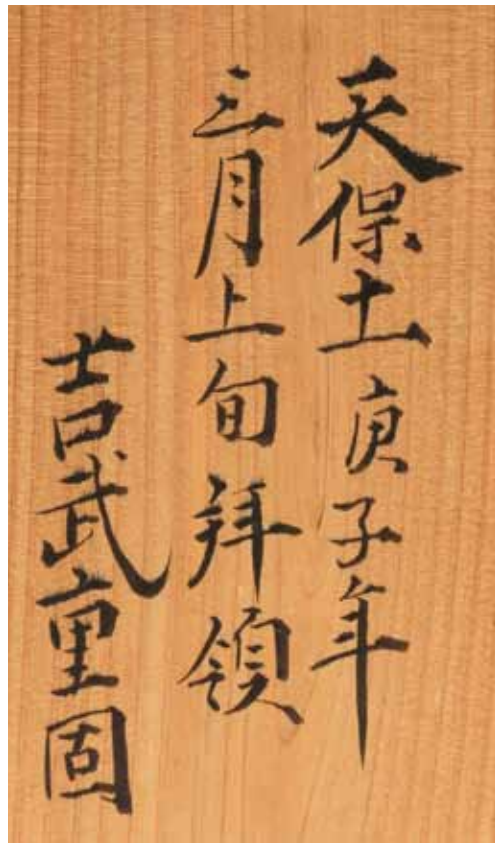 天保十一庚子年
三月上旬拝領
吉武重固